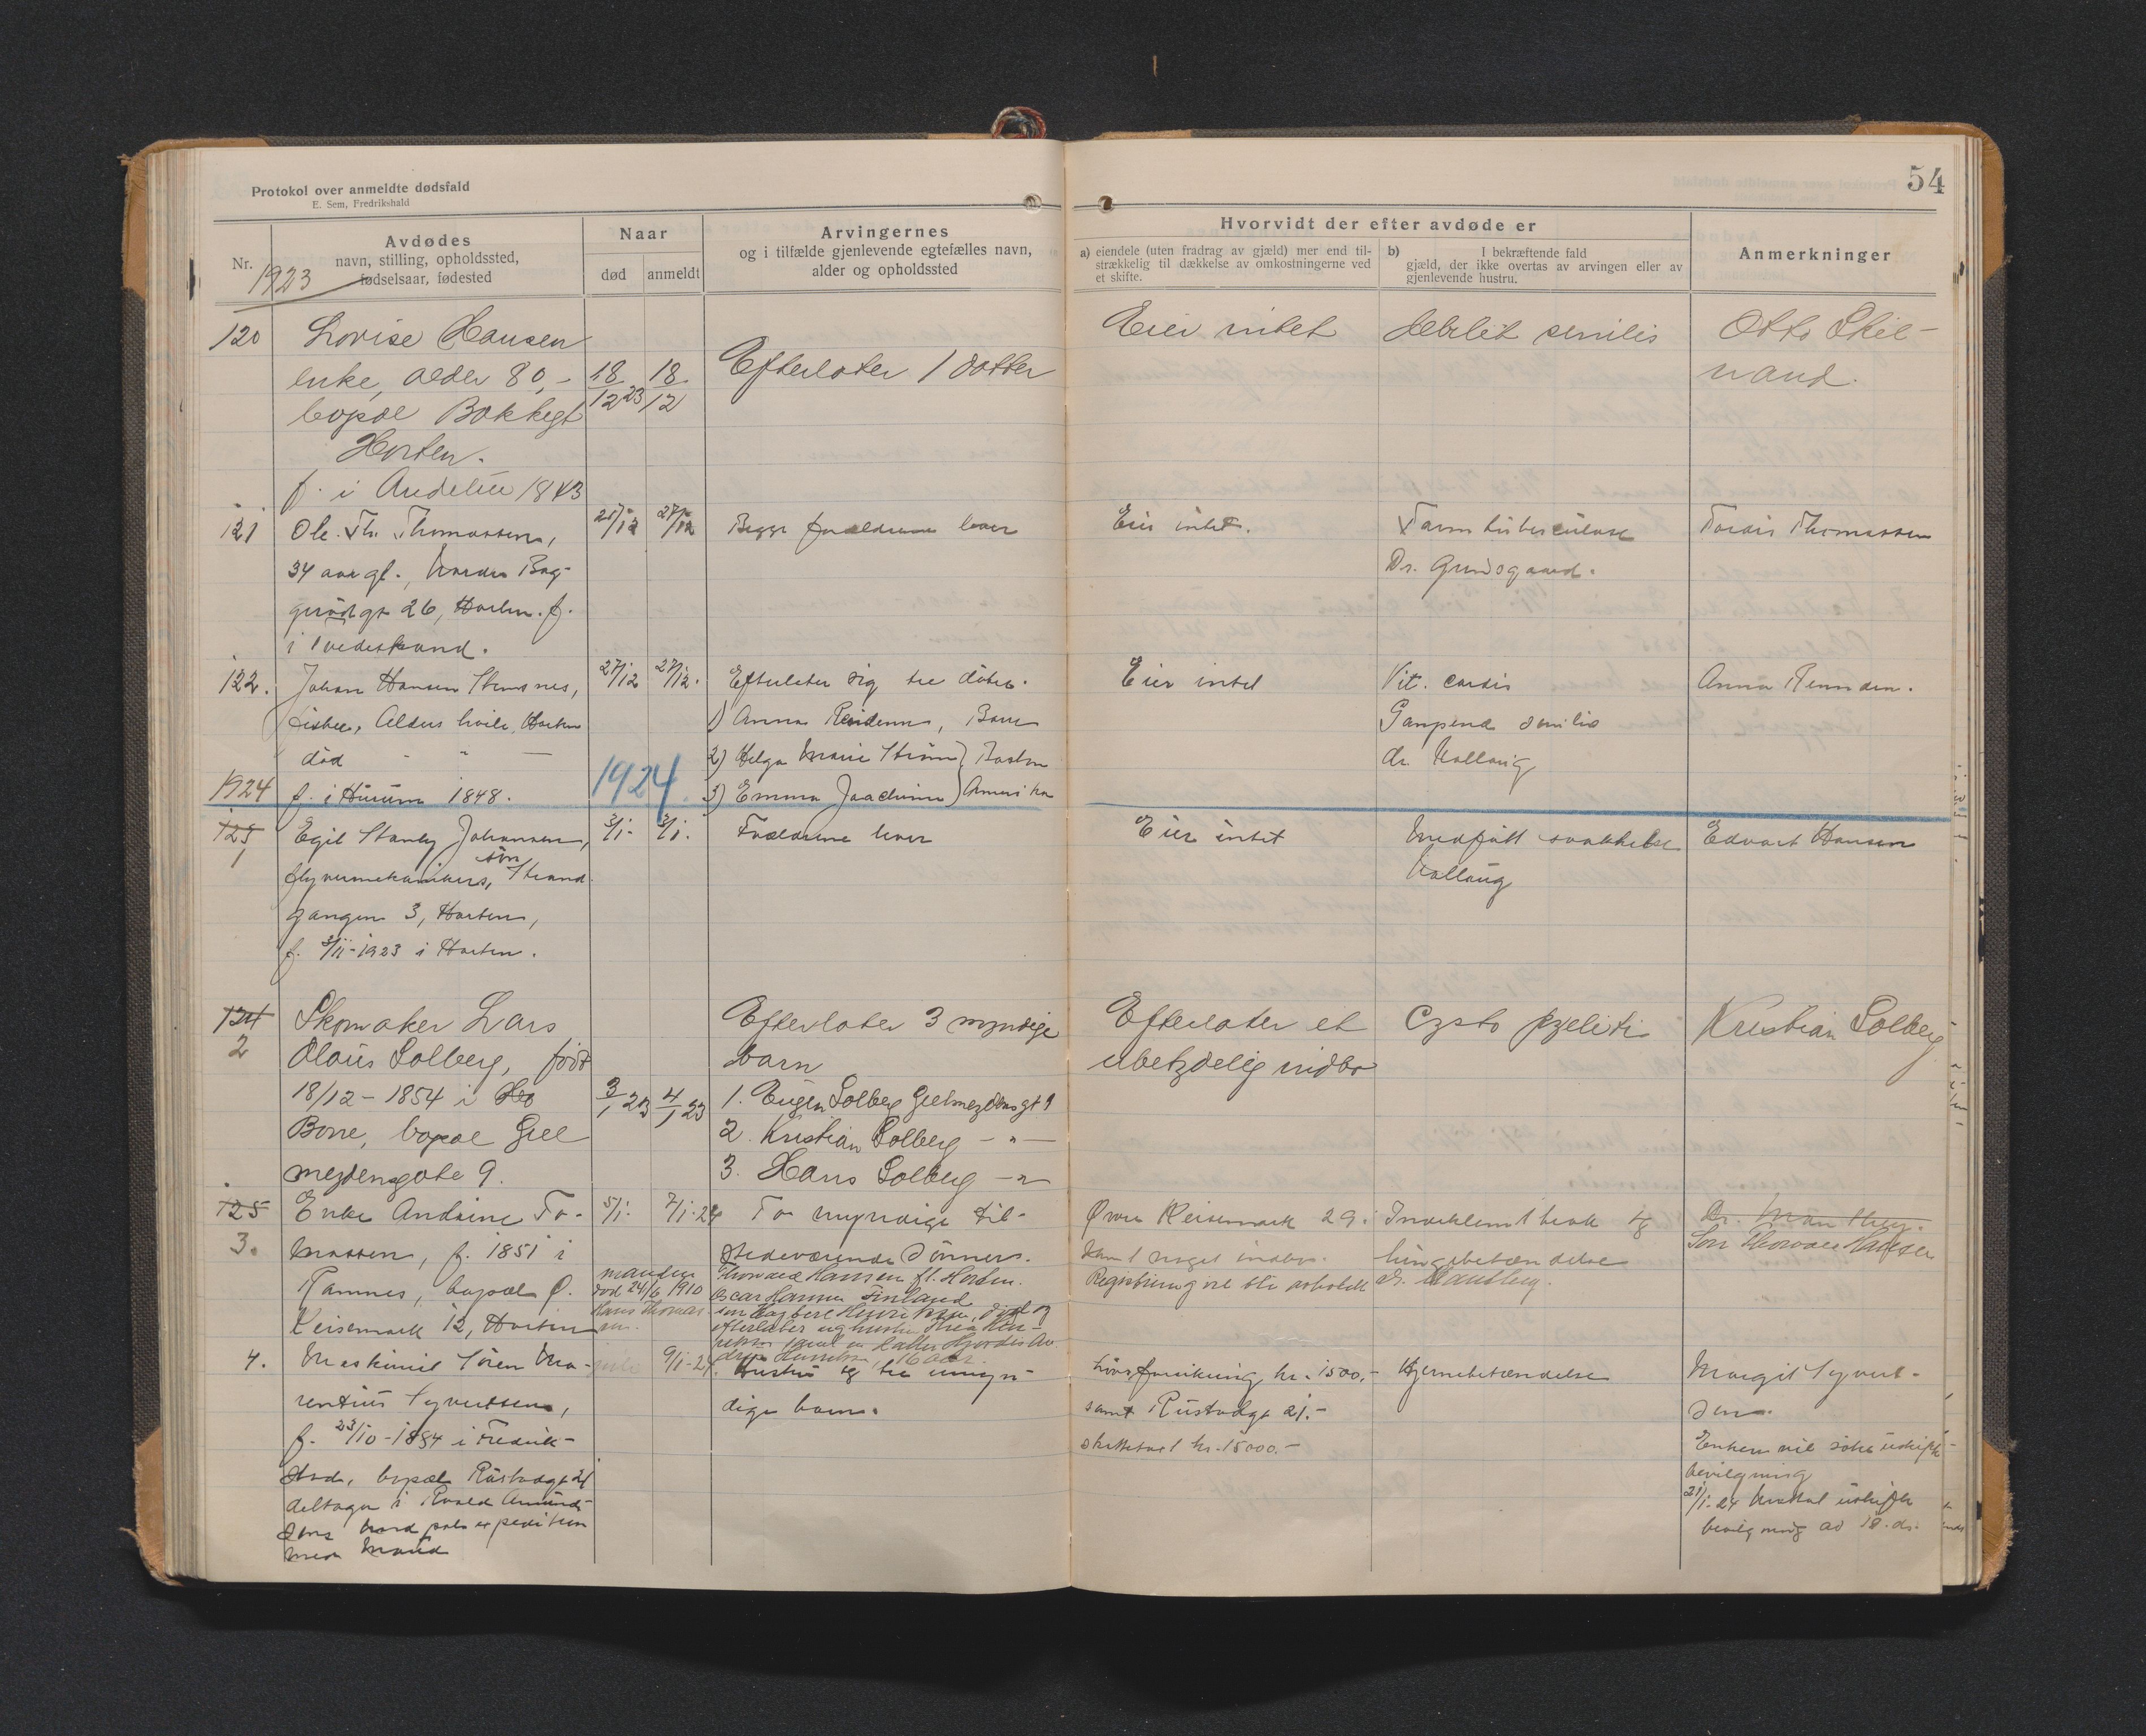 Protokol over anmeldte dødsfald
E. Sem, Fredrikshald
54
Nr.
1923
Avdødes
navn, stilling, opholdssted,
fødselsaar, fødested
Naar
død
anmeldt
Arvingernes
og i tilfælde gjenlevende egtefælles navn,
alder og opholdssted
Hvorvidt der efter avdøde er
a) eiendele (uten fradrag av gjæld) mer end til-
strækkelig til dækkelse av omkostningerne ved
et skifte.
b) I bekræftende fald
gjæld, der ikke overtas av arvingen eller av
gjenlevende hustru.
Anmerkninger
120
Lovise Hansen
enke, alder 80,-
bopæl Bakkegt
Horten.
f. i Andebu 1843
18/12 23
18/12
Efterlater 1 datter
Eier intet
debilit senilis
Otto
121
Ole Th. Thomassen,
34 aar gl.,
26, Horten. f.
i Tvedestrand.
27/12
Begge forældrene lever
Eier intet.
Tarmtuberculose
Dr.
Tordis Thomassen
122.
Johan Hansen
fisker, Alders hvile, Horten
død - " -
f. i Hurum 1848.
27/12
27/12.
Efterlater sig tre døtre.
1) Anna
2) Helga Marie Strøm } Boston
3) Emma Joachim } Amerika
Eier intet
Vit. cordis
senilis
dr. Kallaug
Anna
1924
1924
123
1
Egil Stanly Johansen,
flyvermekanikers søn, Strand
gangen 3, Horten,
f. 3/11-1923 i Horten.
3/1-
3/1.
Forældrene lever
Eier intet
Medfødt svakhelse
Kallaug
Edvart Hansen
124
2
Skomaker Lars
Olaus Solberg, født
18/12-1854 i
Borre, bopæl Geel
meydensgate 9.
3/1 23
4/1 23
Efterlater 3 myndige
barn
1. Eugen Solberg Geelmeydensgt 9
2. Kristian Solberg - " -
3. Hans Solberg - "
Efterlater et
ubetydelig indbo
Cysto pyeliti
Kristian Solberg
125
3.
Enke Andrine To-
massen, f. 1851 i
Ramnes, bopæl Ø.
Keisemark 12, Horten
5/1-
7/1-24
manden
død 24/6 1910
Hans Thomas-
sen.
To myndige til-
stedeværende sønner.
Thorvald Hansen fl. Horten.
Oscar Hansen Finland
død og
efterlater sig hustru
16 aar.
Øvre Keisemark 29.
samt noget indbo.
Registrering vil bli avholdt
Indeklemt brok og
lungebetændelse
dr. Sandberg.
Søn Thorvald Hansen
4.
Maskinist Søren
rentius Syvertsen,
f. 23/10-1884 i Fredrik-
stad, bopæl Rustadgt 21
deltager i Roald Amund-
sens Nordpolsexpedition
med Maud
9/1-24.
Hustru og tre umyn-
dige barn.
Livsforsikring kr. 1500,-
samt Rustadgt 21.-
skattetakst kr. 15000.-
Hjernebetændelse
Margit Syvert-
sen.
Enken vil søke uskifte-
bevilgning
21/1-24 meddelt uskifte
bevilgning av 18. ds.